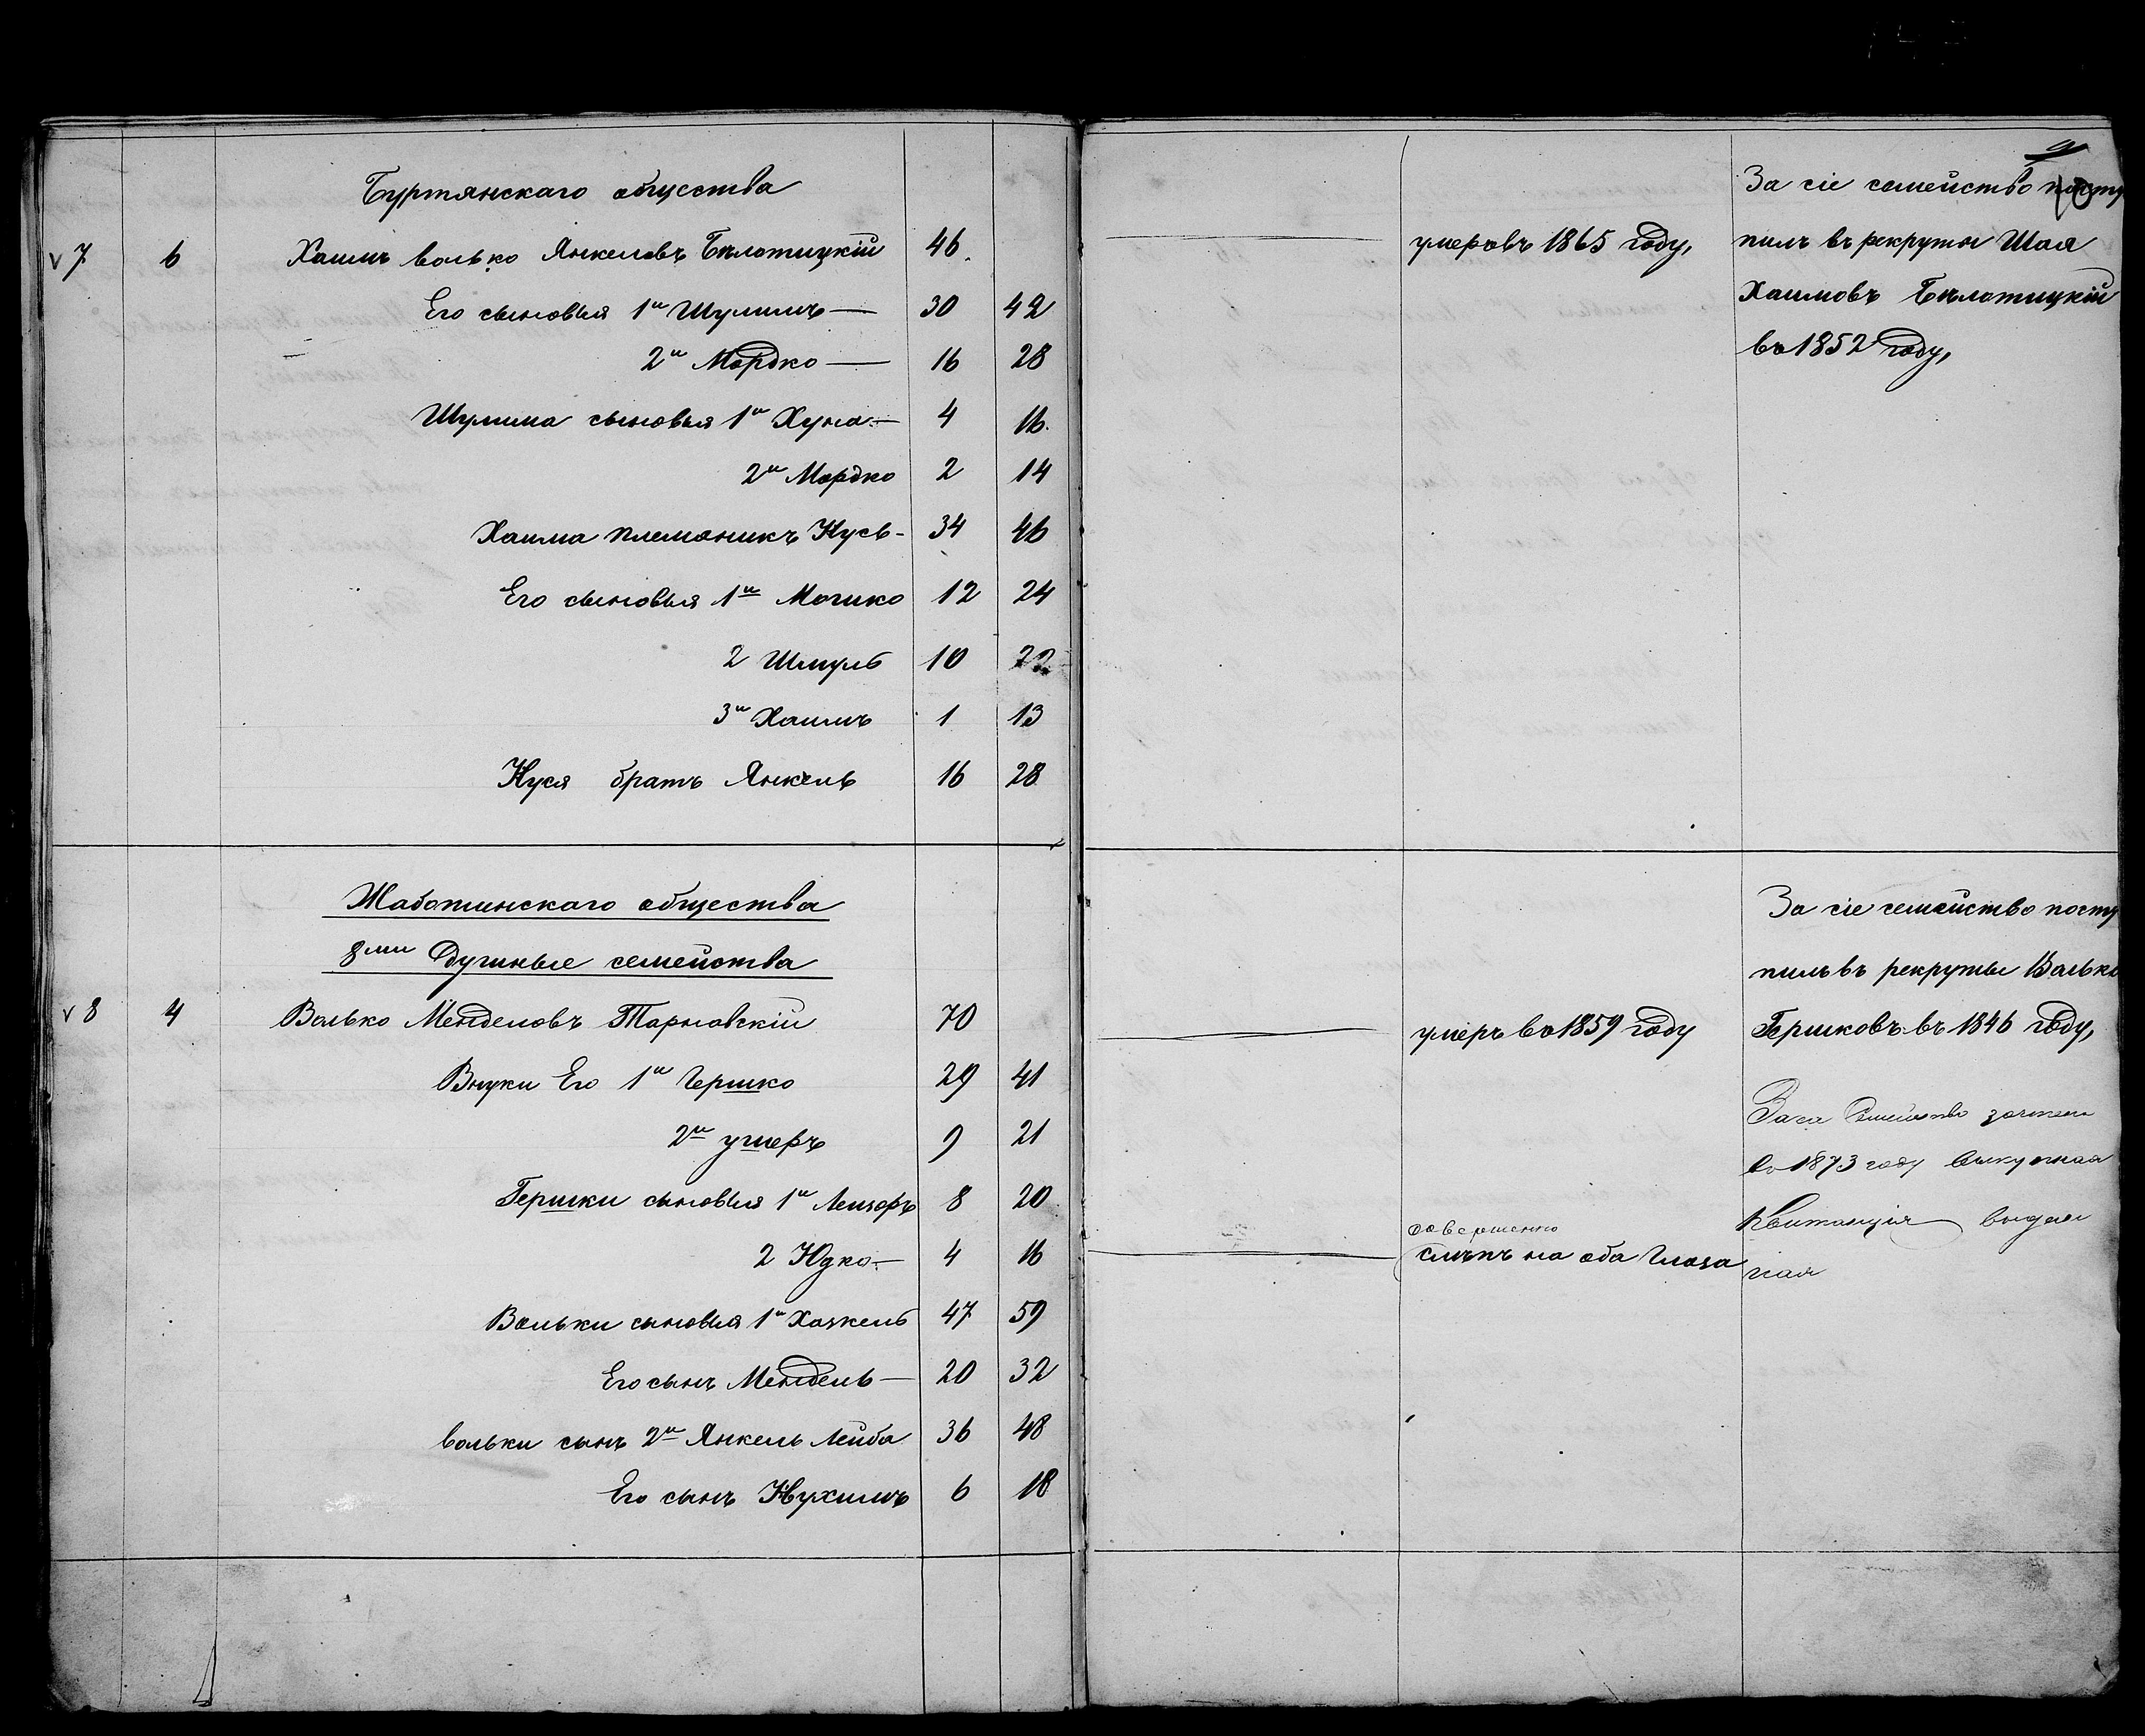 Буртянскаго общества
v 7 6 Хаимъ Волько Янкелевъ Бѣлотицкій 46.
Его сыновья 1й Шулимъ — 30 42
2й Мордко — 16 28
Шулима сыновья 1й Хуна — 4 16.
2й Мордко 2 14
Хаима племяникъ Нусь - 34 46
Его сыновья 1й Мошко 12 24
2 Шмуль 10 22
3й Хаимъ 1 13
Нуся братъ Янкель 16 28
Жаботинскаго общества
8ми Душные семейства
v 8 4 Волько Менделовъ Тарнавскій 70
Внуки Его 1й Гершко 29 41
2й умеръ 9 21
Гершки сыновья 1й Лейзоръ 8 20
2 Юдко — 4 16
Вольки сыновья 1й Хаскель 47 59
Его сынъ Мендель — 20 32
Вольки сынъ 2й Янкель Лейба 36 48
Его сынъ Нухимъ 6 18
9
10
умеръ въ 1865 году,
За сіе семейство посту
пилъ въ рекруты Шая
Хаимовъ Бѣлотицкій
въ 1852 году,
умеръ въ 1859 году
совершенно
слѣпъ на оба глаза
За сіе семейство посту
пилъ въ рекруты Волько
Гершковъ въ 1846 году,
За сіе Семейство зачтена
въ 1873 году выкупная
Квитанція выдан
ная